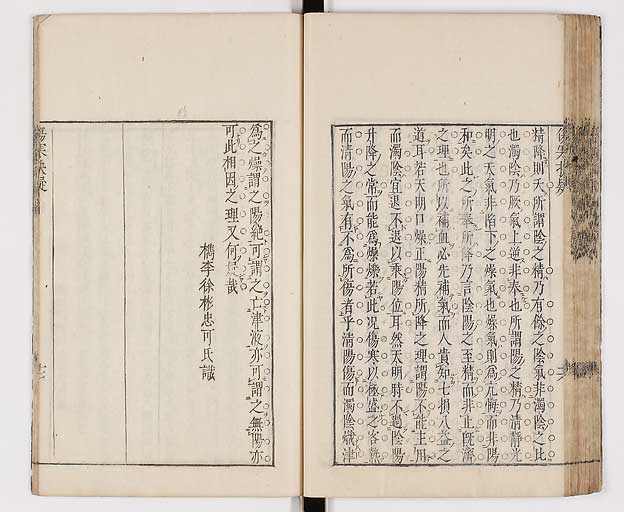 精降則天所謂陰之精乃有餘之陰氣非濁陰之比
也濁陰乃厥氣上逆非奉也所謂陽之精乃清靜光
明之天氣非陷下之燥氣也燥氣則為亢悔而非陽
和矣此之所奉所降乃言陰陽之至精而非止既濟
之理也所以補血必先補氣而人貴知七損八益之
道耳若天明口燥正陽精所降之理謂陽不能主用
而濁陰宜退不退以乘陽位耳然天明時不過陰陽
升降之常而能為燥爍若此况傷寒以極盛之客熱
而清陽之氣有不為所傷者乎清陽傷而濁陰熾津
為之燥謂之陽絕可謂之亡津液亦可謂之無陽亦
可此相因之理又何疑哉
檇李徐彬忠可氏識